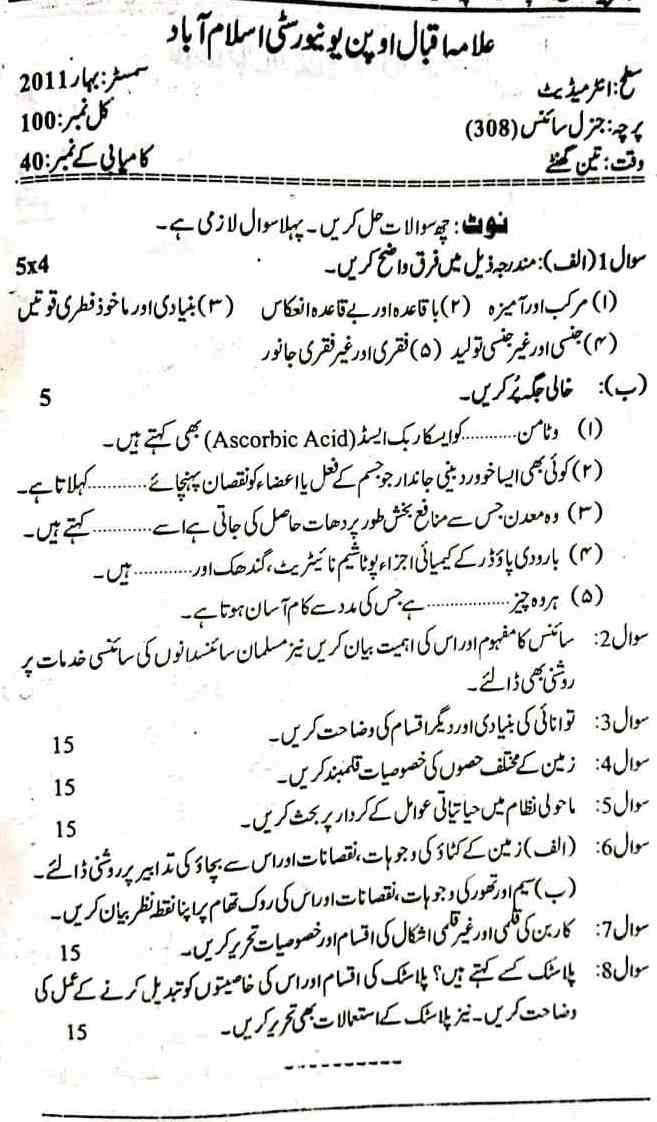 علامہ اقبال اوپن یونیورسٹی اسلام آباد
سطح: انٹرمیڈیٹ سمسٹر: بہار 2011
پرچہ: جنرل سائنس (308) کل نمبر: 100
وقت: تین گھنٹے کامیابی کے نمبر: 40
نوٹ: چھ سوالات حل کریں۔ پہلا سوال لازمی ہے۔
سوال 1 (الف): مندرجہ ذیل میں فرق واضح کریں۔ 5x4
(۱) مرکب اور آمیزہ (۲) باقاعدہ اور بے قاعدہ انعکاس (۳) بنیادی اور ماخوذ فطری قوتیں
(۴) جنسی اور غیر جنسی تولید (۵) فقری اور غیر فقری جانور
(ب): خالی جگہ پُر کریں۔ 5
(۱) وٹامن ........... کو ایسکاربک ایسڈ (Ascorbic Acid) بھی کہتے ہیں۔
(۲) کوئی بھی ایسا خوردبینی جاندار جو جسم کے فعل یا اعضاء کو نقصان پہنچائے ........... کہلاتا ہے۔
(۳) وہ معدن جس سے منافع بخش طور پر دھات حاصل کی جاتی ہے اسے ........... کہتے ہیں۔
(۴) بارودی پاؤڈر کے کیمیائی اجزاء پوٹاشیم نائیٹریٹ، گندھک اور ........... ہیں۔
(۵) ہر وہ چیز ................ ہے جس کی مدد سے کام آسان ہوتا ہے۔
سوال 2: سائنس کا مفہوم اور اس کی اہمیت بیان کریں نیز مسلمان سائنسدانوں کی سائنسی خدمات پر
روشنی بھی ڈالئے۔
سوال 3: توانائی کی بنیادی اور دیگر اقسام کی وضاحت کریں۔ 15
سوال 4: زمین کے مختلف حصوں کی خصوصیات قلمبند کریں۔ 15
سوال 5: ماحولی نظام میں حیاتیاتی عوامل کے کردار پر بحث کریں۔ 15
سوال 6: (الف) زمین کے کٹاؤ کی وجوہات، نقصانات اور اس سے بچاؤ کی تدابیر پر روشنی ڈالئے۔
(ب) سیم اور تھور کی وجوہات، نقصانات اور اس کی روک تھام پر اپنا نقطہ نظر بیان کریں۔
سوال 7: کاربن کی قلمی اور غیر قلمی اشکال کی اقسام اور خصوصیات تحریر کریں۔ 15
سوال 8: پلاسٹک کسے کہتے ہیں؟ پلاسٹک کی اقسام اور اس کی خاصیتوں کو تبدیل کرنے کے عمل کی
وضاحت کریں۔ نیز پلاسٹک کے استعمالات بھی تحریر کریں۔ 15